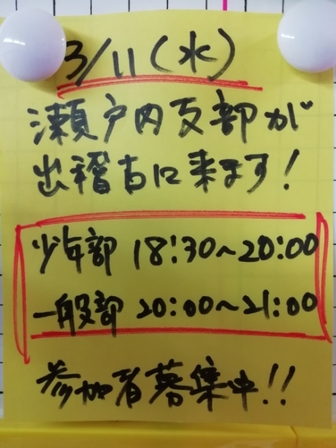 3/11(水)
瀬戸内支部が
出稽古に来ます!
少年部 18:30~20:00
一般部 20:00~21:00
参加者募集中!!